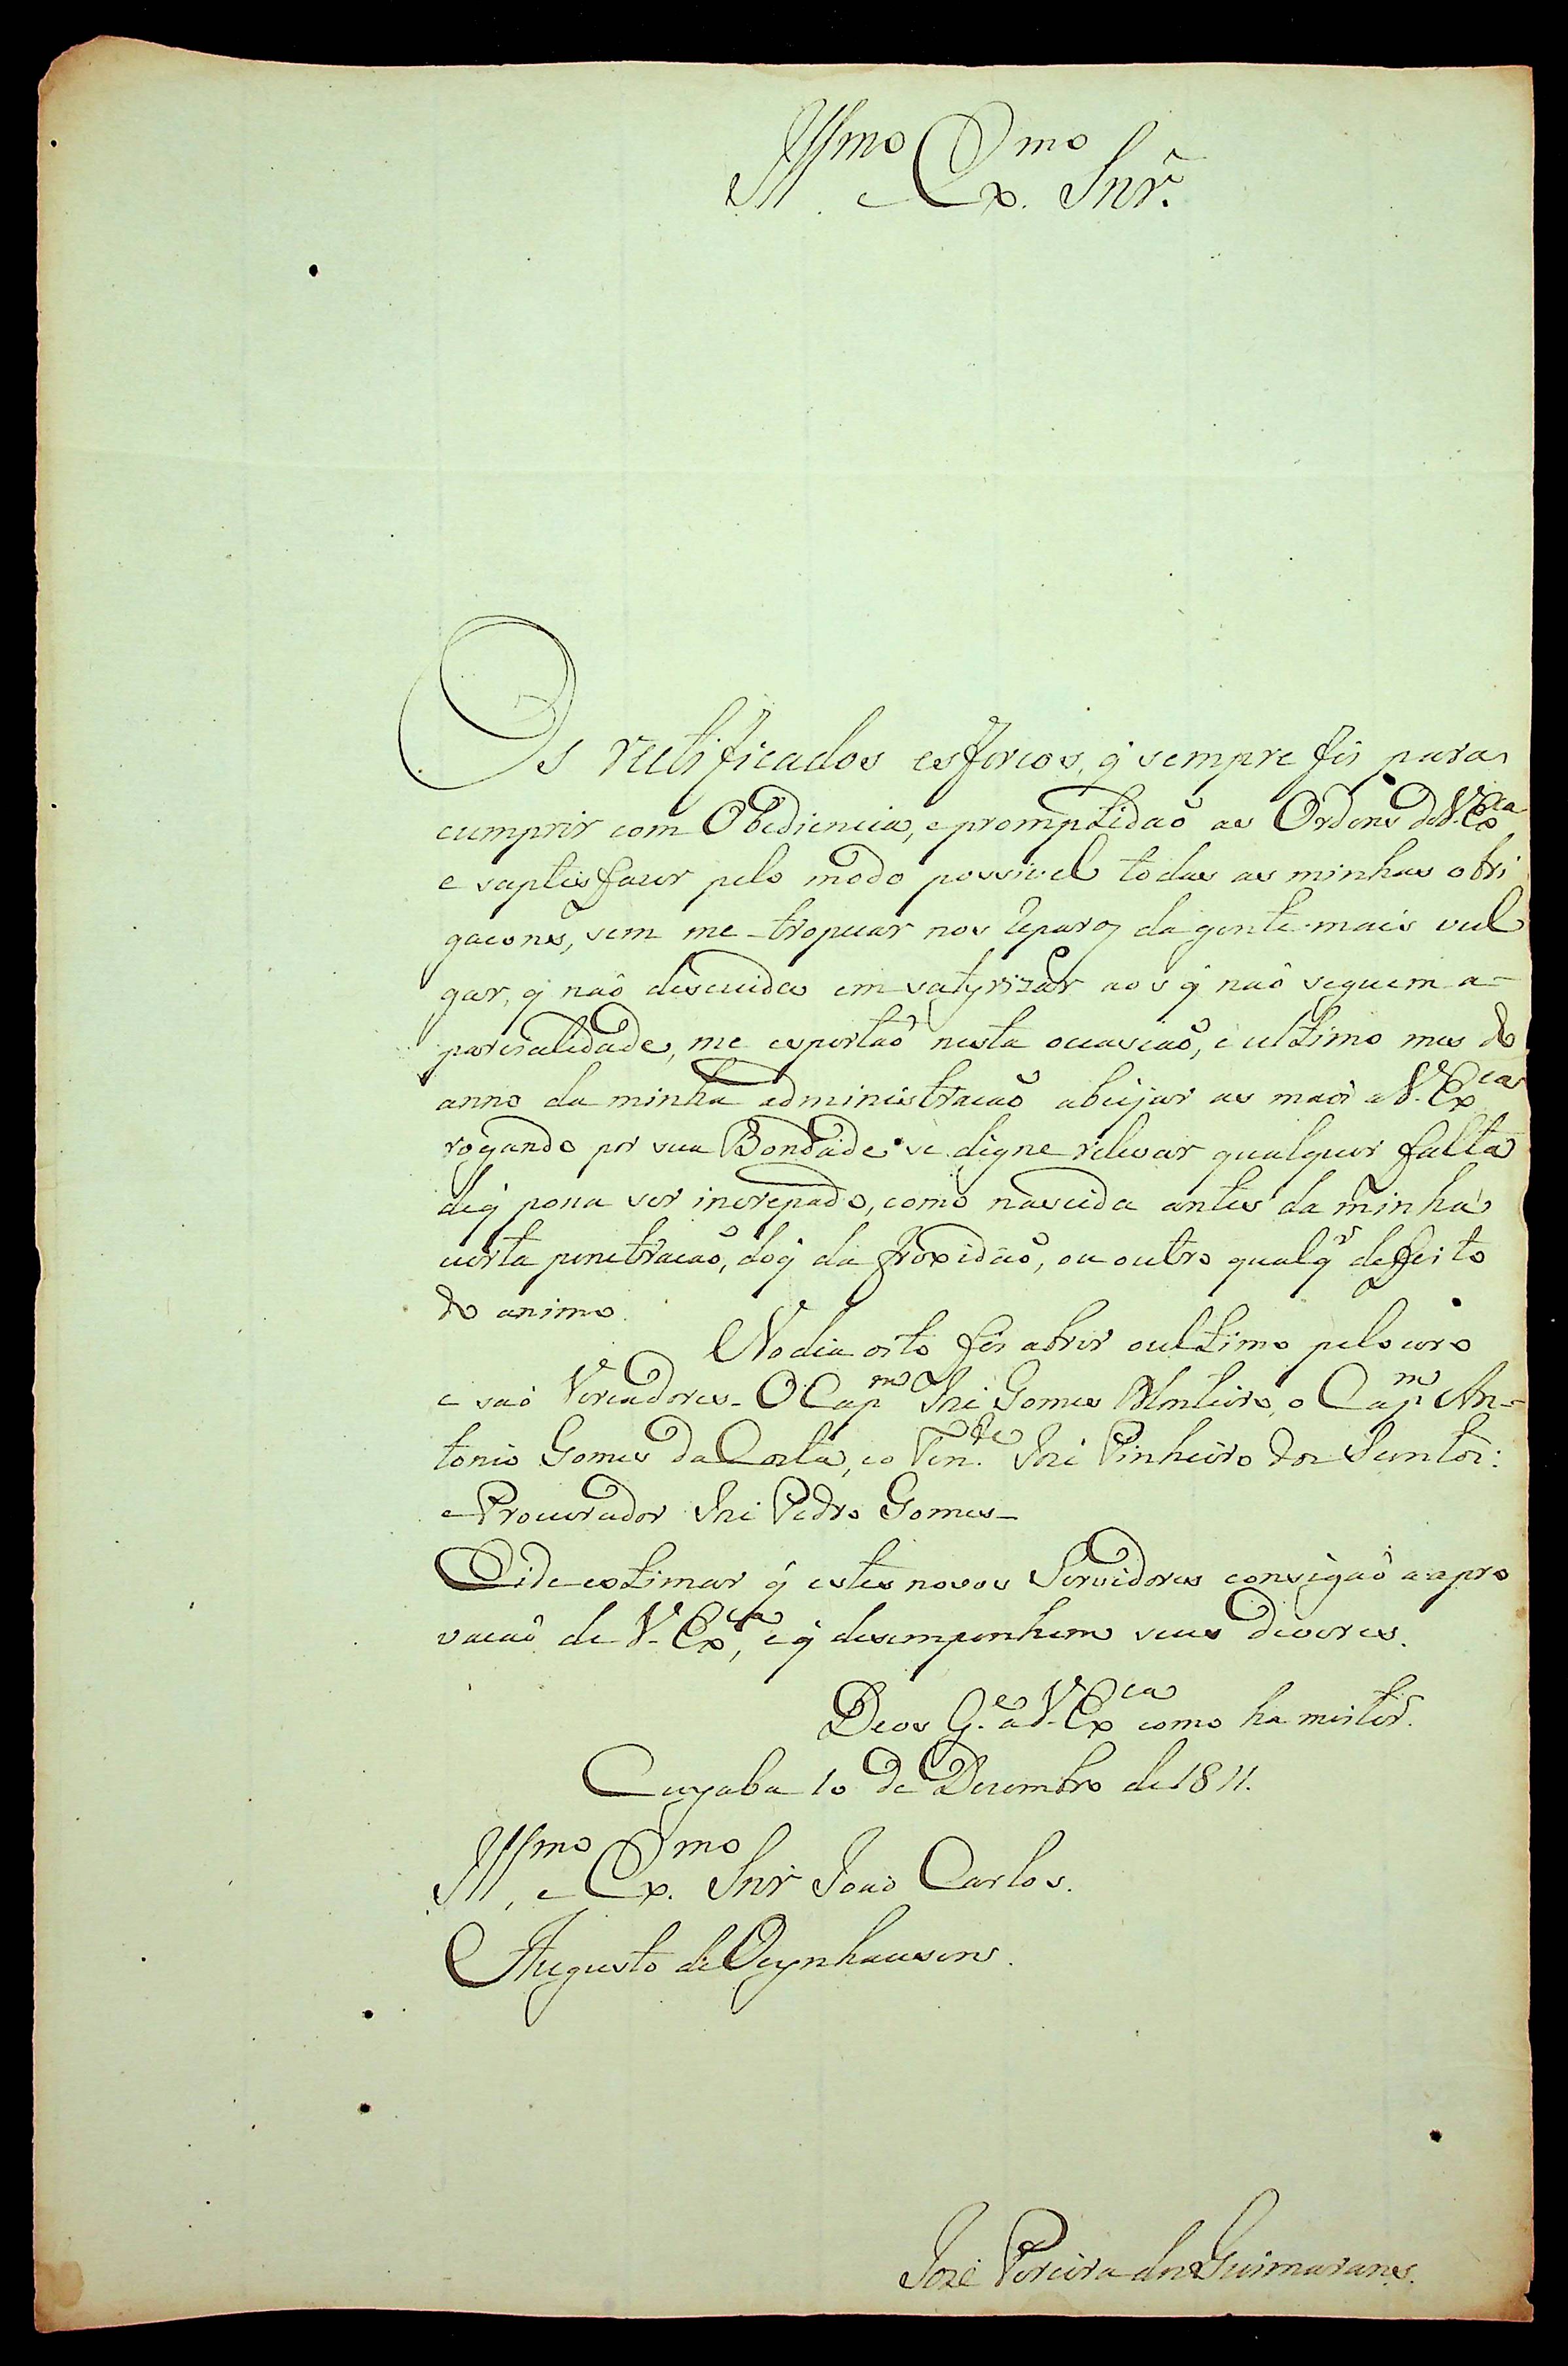 Ill.mo e Ex.mo Snr.
Os rectificados esforcos, q̃ sempre fis para
cumprir com Obediencia, e promptidaõ as Ordens de V. Ex.ca
e saptisfazer pelo modo possivel todas as minhas obri
gacones, sem me tropecar nos reparos da gente mais vul
gar, q̃ naõ descuida em satyrizar aos q̃ naõ seguem a-
parcialidade, me esportaõ nesta occasiaõ, e ultimo mes do
anno da minha administracaõ abeijar as maõs a V. Ex.ca
rogando por sua Bondade se digne relevar qualquer falta
deq̃ possa ser increpado, como nascida antes da minha
curta penetracaõ, doq̃ da froxidaõ, ou outro qualq.r defeito
do animo.
No dia oito fis abrir oultimo pelouro
e saõ Vereadores - O Cap.m Joze Gomes Monteiro, o Cap.m An-
tonio Gomes da Costa, eo Ten.te Joze Pinheiro dos Santos:
e Procurador Joze Pedro Gomes-
Eide estimar q̃ estes novos Servidores consigaõ a apro
vacaõ de V. Ex.ca, e q̃ desempenhem seus deveres.
Deos G.e a V. Ex.ca como ha mister.
Cuyaba 10 de Dezembro de 1811.
Ill.mo e Ex.mo Snr Joaõ Carlos
Augusto de Oeynhausen.
Joze Pereira dos Guimaranes.